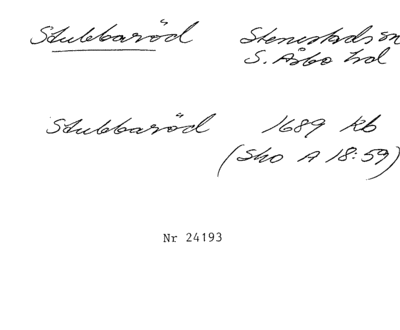 Stubbaröd Stenestads sn
S. Åsbo hd
Stubbaröd 1689 Kb
(Sko A 18:59)
Nr 24193